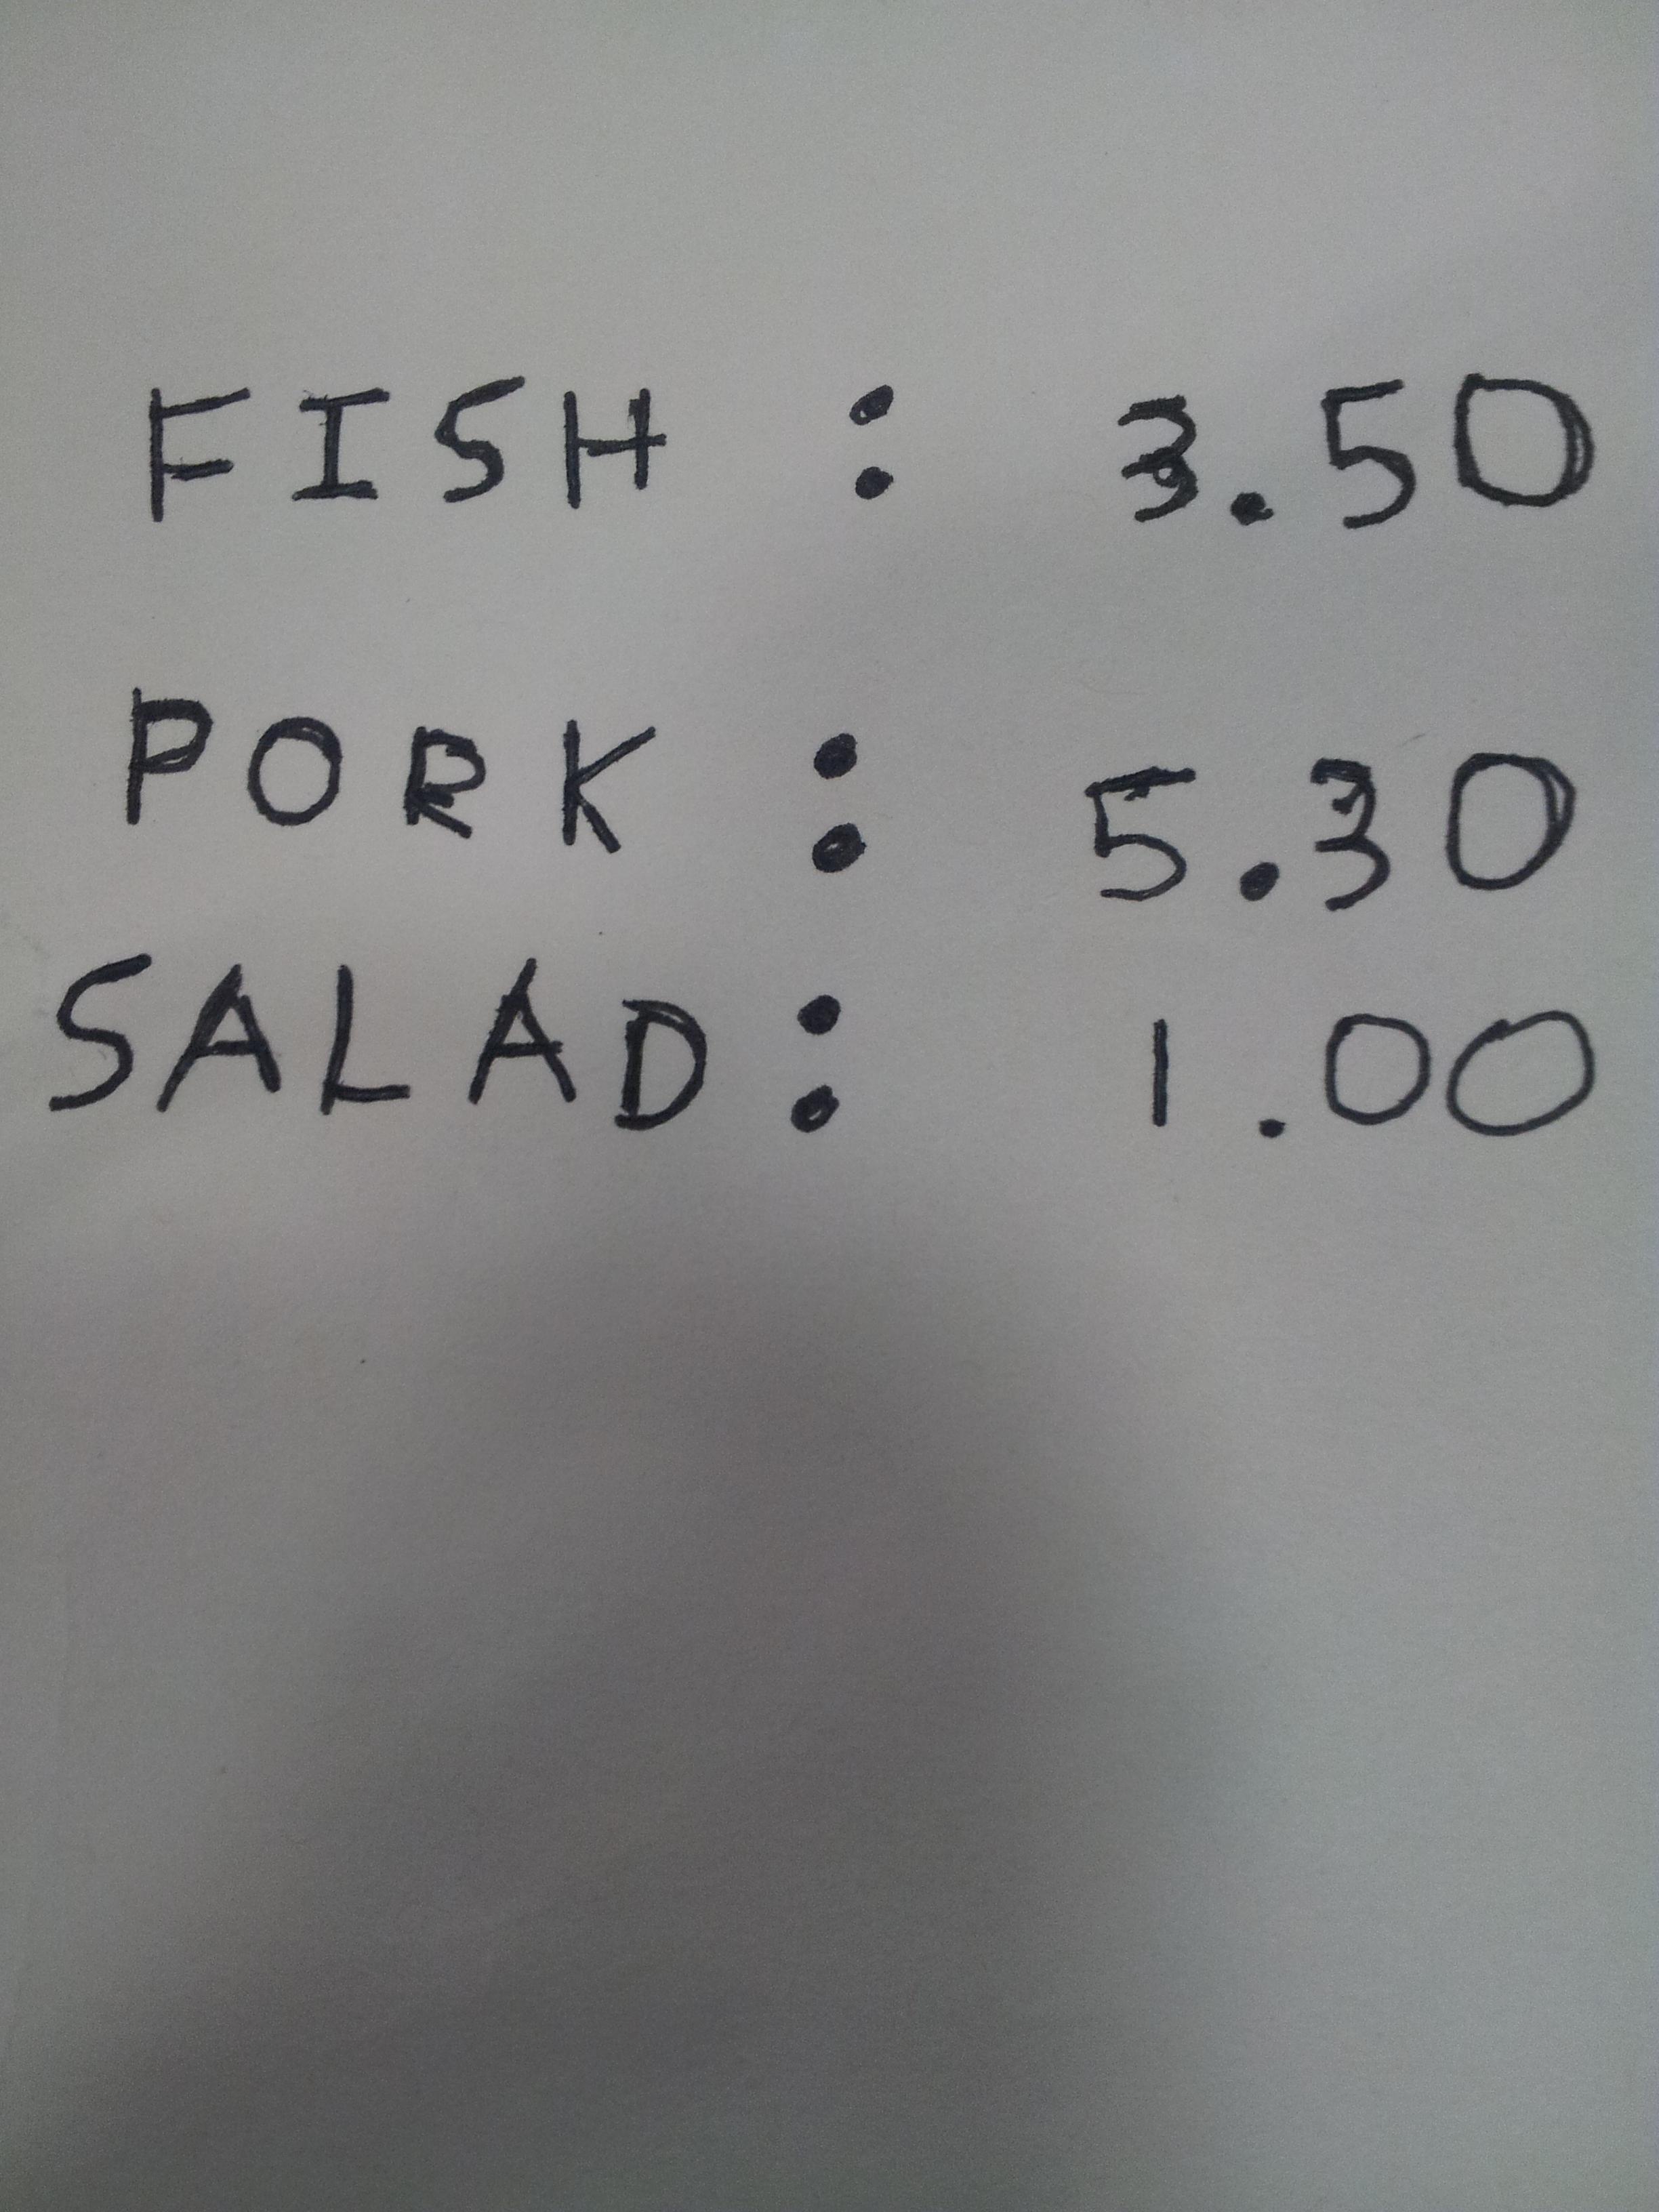 FISH : 3.50
PORK : 5.30
SALAD : 1.00